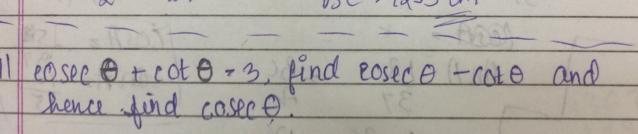 11 cosec θ + cot θ = 3, find cosec θ - cot θ and
hence find cosec θ.